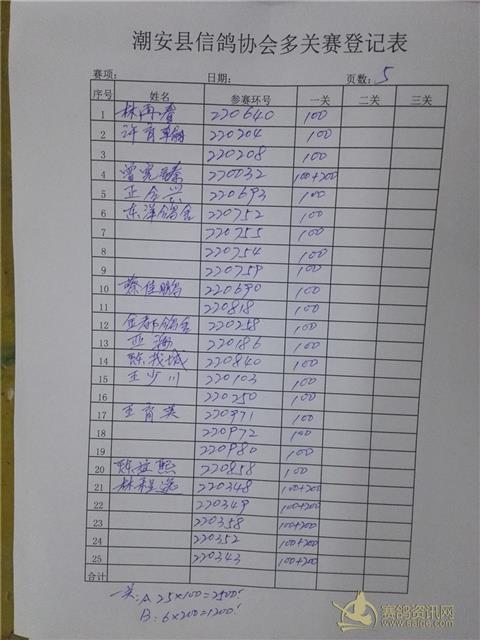 潮安县信鸽协会多关赛登记表
赛项： 日期： 页数：5
序号 姓名 参赛环号 一关 二关 三关
1 林再春 220640 100
2 许育 220204 100
3 220208 100
4 曾 220032 100+200
5 正合兴 220693 100
6 东洋鸽舍 220752 100
7 220755 100
8 220754 100
9 220759 100
10 蔡佳鹏 220690 100
11 220818 100
12 金都鸽舍 220258 100
13 亚 220186 100
14 陈 城 220840 100
15 王少川 220103 100
16 220250 100
17 王育英 220971 100
18 220972 100
19 220980 100
20 陈 熙 220858 100
21 林 220348 100+200
22 220349 100+200
23 220358 100+200
24 220352 100+200
25 220343 100+200
合计
一关：A 25×100=2500.
B：6×200=1200.
赛鸽资讯网